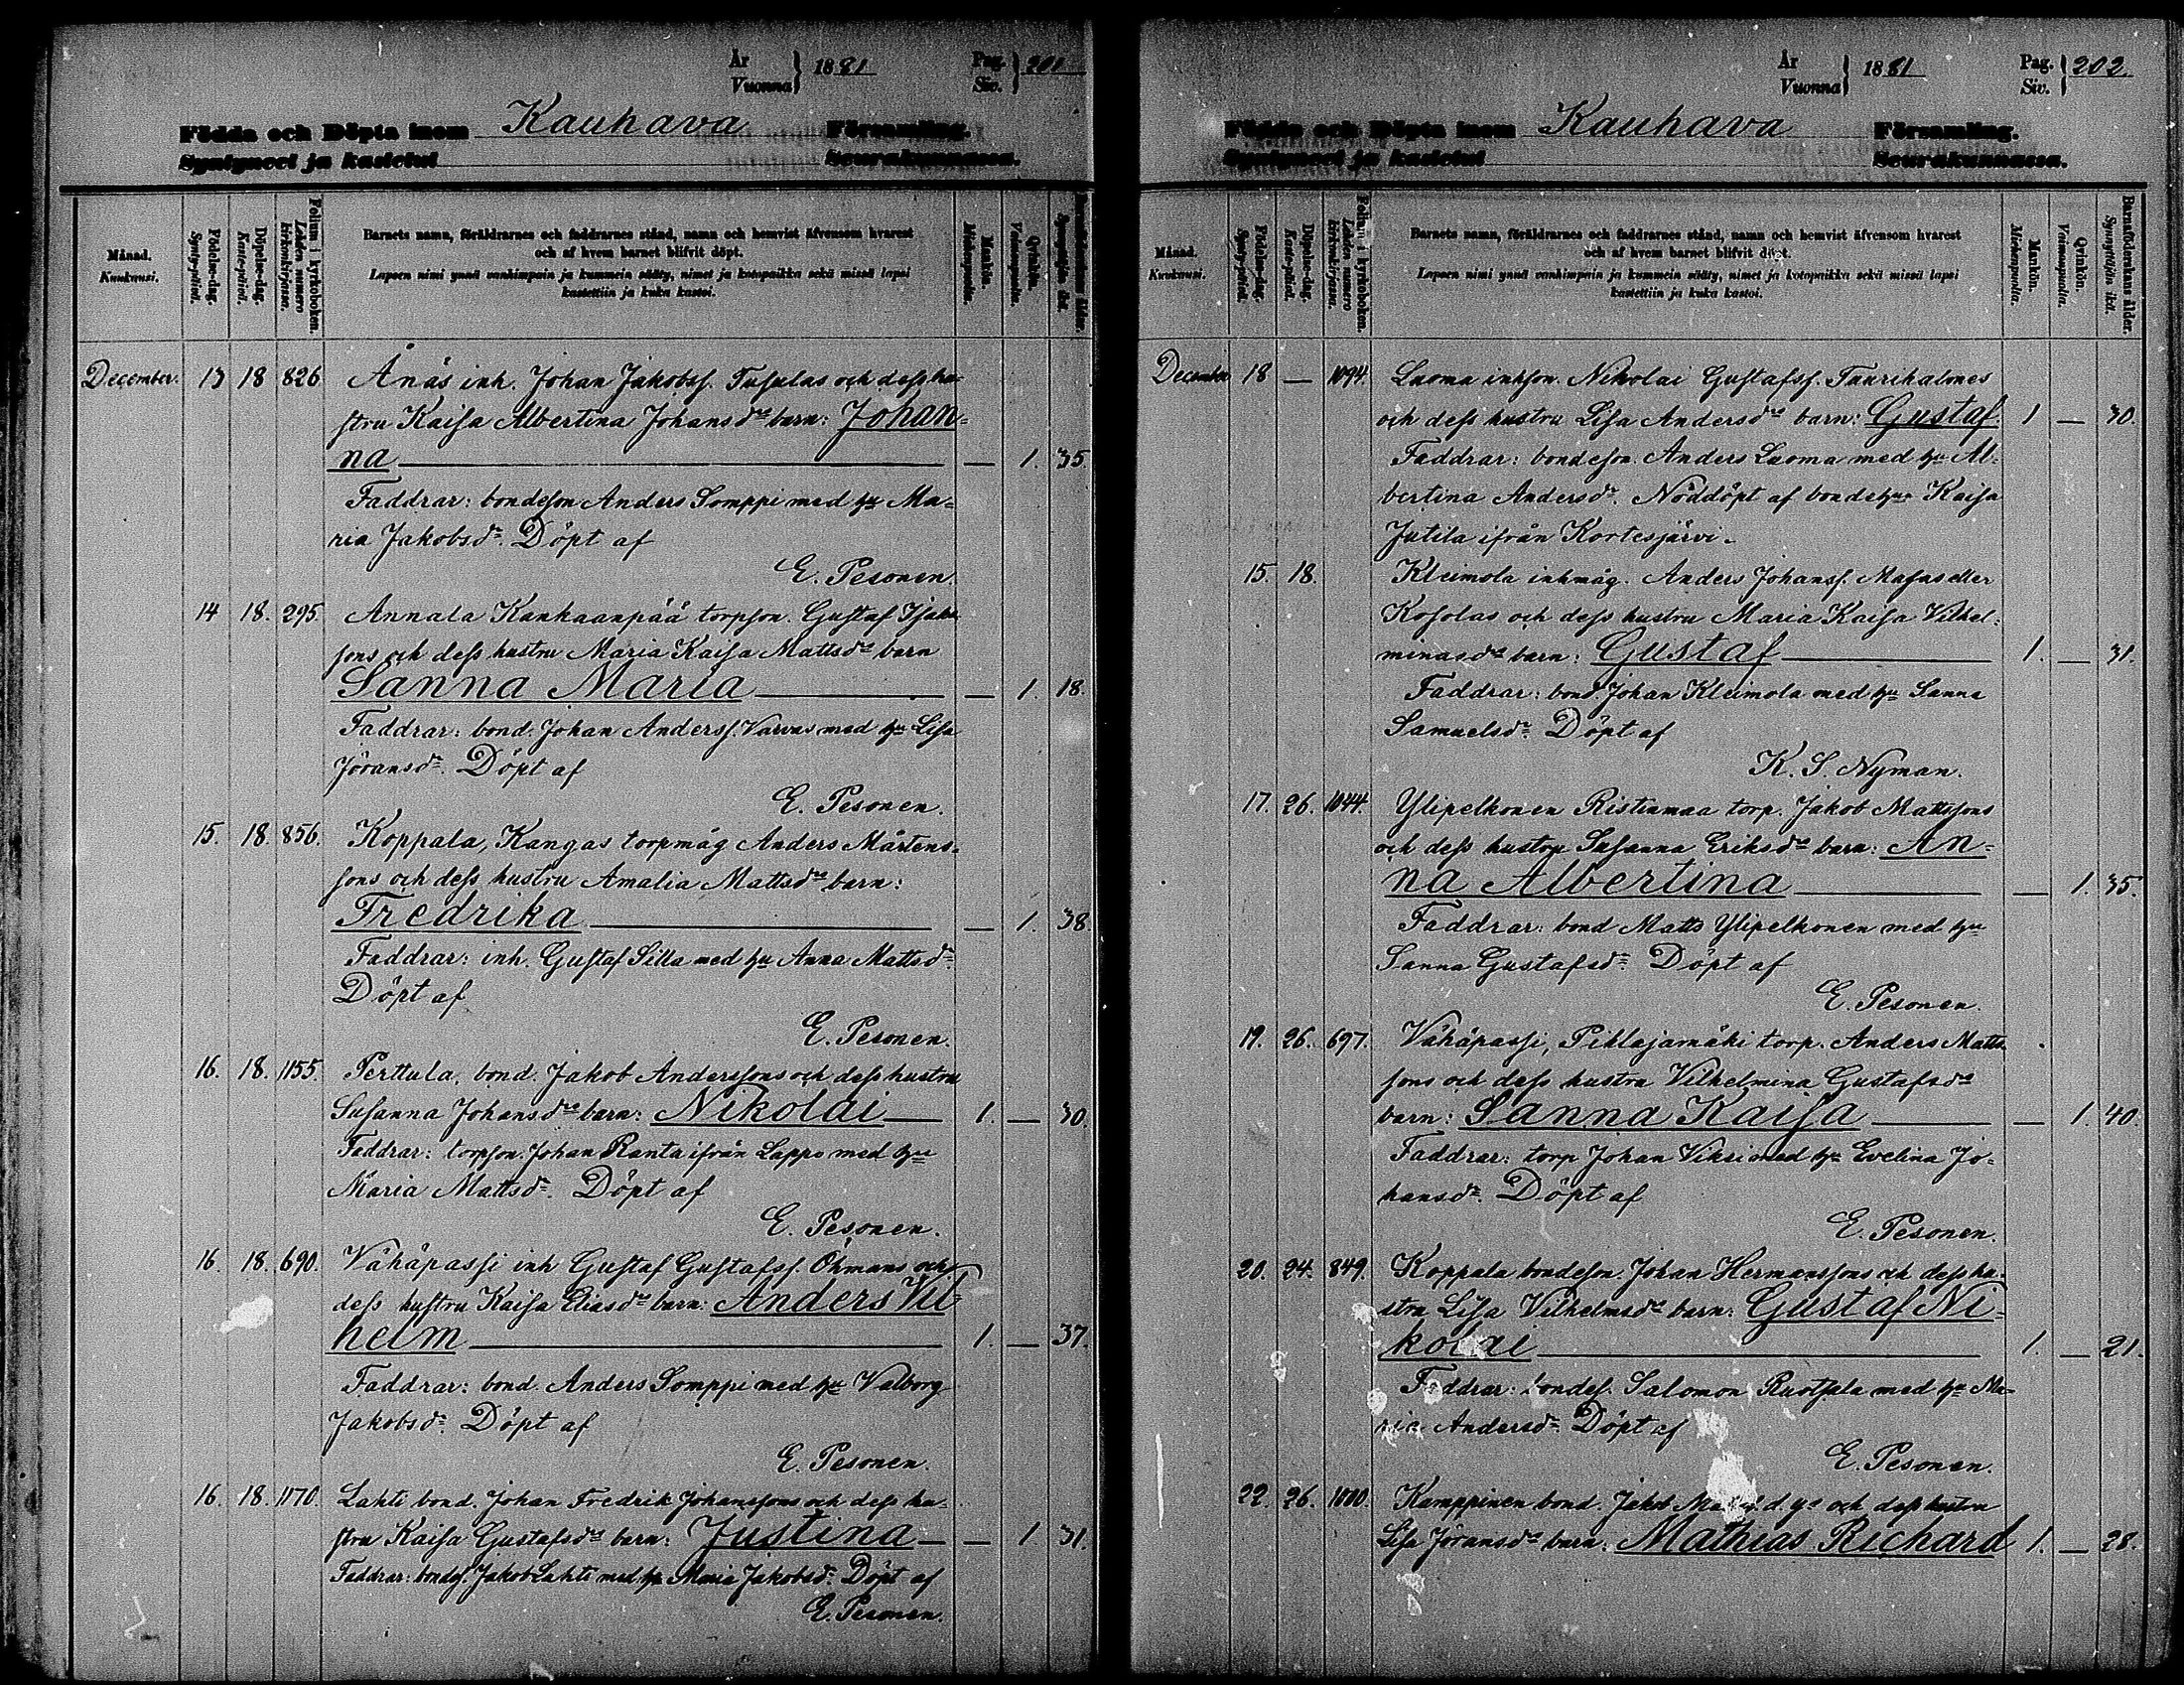 År
Vuonna } 1881
Pag.
Siv. } 201
Födda och Döpta inom Kauhava Församling.
Syntyneet ja kastetut Seurakunnassa.
Månad.
Kuukausi.
Födelse-dag.
Synty-päivä.
Döpelse-dag.
Kaste-päivä.
Folium i kyrkoboken.
Lehden numero kirkonkirjassa.
Barnets namn, föräldrarnes och faddrarnes stånd, namn och hemvist äfvensom hvarest
och af hvem barnet blifvit döpt.
Lapsen nimi ynnä vanhimpain ja kummein sääty, nimet ja kotopaikka sekä missä lapsi
kastettiin ja kuka kastoi.
Mankön.
Miehenpuolia.
Qvinkön.
Vaimonpuolia.
December. 13 18 826. Ånäs inh. Johan Jakobss. Tusulas och dess hu-
stru Kaisa Albertina Johansdrs barn: Johan-
na — — 1. 35
Faddrar: bondeson Anders Somppi med hu Ma-
ria Jakobsdr. Döpt af
E. Pesonen.
14 18. 295. Annala Kankaanpää torpson. Gustaf Isaks
sons och dess hustru Maria Kaisa Mattsdrs barn
Sanna Maria — — 1. 18.
Faddrar: bond. Johan Anderss. Varvas med hu Lisa
Jöransdr. Döpt af
E. Pesonen.
15. 18. 856. Koppala, Kangas torpmåg Anders Mårtens-
sons och dess hustru Amalia Mattsdrs barn:
Fredrika — — 1. 38
Faddrar: inh. Gustaf Silla med hu Anna Mattsdr.
Döpt af
E. Pesonen.
16. 18. 1155. Perttula, bond. Jakob Anderssons och dess hustru
Susanna Johansdrs barn: Nikolai — 1. — 30.
Faddrar: torpson. Johan Ranta ifrån Lappo med hu
Maria Mattsdr. Döpt af
E. Pesonen.
16. 18. 690. Vähäpassi inh Gustaf Gustafss. Öhmans och
dess hustru Kaisa Eliasdrs barn: Anders Vil-
helm — 1. — 37.
Faddrar: bond. Anders Somppi med hu Valborg
Jakobsdr. Döpt af
E. Pesonen.
16. 18. 1170. Lahti bond. Johan Fredrik Johanssons och dess hu-
stru Kaisa Gustafsdrs barn: Justina — — 1 31.
Faddrar: bondes. Jakob Lahti med hu Maria Jakobsdr. Döpt af
E. Pesonen.
År
Vuonna } 1881
Pag.
Siv. } 202.
Födda och Döpta inom Kauhava Församling.
Syntyneet ja kastetut Seurakunnassa.
Månad.
Kuukausi.
Födelse-dag.
Synty-päivä.
Döpelse-dag.
Kaste-päivä.
Folium i kyrkoboken.
Lehden numero kirkonkirjassa.
Barnets namn, föräldrarnes och faddrarnes stånd, namn och hemvist äfvensom hvarest
och af hvem barnet blifvit döpt.
Lapsen nimi ynnä vanhimpain ja kummein sääty, nimet ja kotopaikka sekä missä lapsi
kastettiin ja kuka kastoi.
Mankön.
Miehenpuolia.
Qvinkön.
Vaimonpuolia.
Barnaföderskans ålder.
Synnyttäjän ikä.
December 18 — 1094. Luoma inhson. Nikolai Gustafss.
och dess hustru Lisa Andersdrs barn: Gustaf. 1 — 30.
Faddrar: bondeson. Anders Luoma med hu Al-
bertina Andersdr. Nöddöpt af bondehu Kaisa
Jutila ifrån Kortesjärvi.
15. 18. Kleimola inhmåg. Anders Johanss. Masus eller
Kosolas och dess hustru Maria Kaisa Vilhel-
minasdrs barn: Gustaf — 1. — 31.
Faddrar: bond. Johan Kleimola med hu Sanna
Samuelsdr. Döpt af
K. S. Nyman.
17. 26. 1044. Ylipelkonen Ristinmaa torp. Jakob Mattssons
och dess hustru Susanna Eriksdrs barn: An-
na Albertina — — 1. 35.
Faddrar: bond Matts Ylipelkonen med hu
Sanna Gustafsdr. Döpt af
E. Pesonen.
19. 26. 697. Vähäpassi, Pihlajamäki torp. Anders Matts-
sons och dess hustru Vilhelmina Gustafsdrs
barn: Sanna Kaisa — — 1. 40.
Faddrar: torp Johan med hu Evelina Jo-
hansdr. Döpt af
E. Pesonen.
20. 24. 849. Koppala bondeson. Johan Hermanssons och dess hu-
stru Lisa Vilhelmsdrs barn: Gustaf Ni-
kolai — 1. — 21.
Faddrar: bondes. Salomon Ruotsala med hu Ma-
ria Andersdr. Döpt af
E. Pesonen.
22. 26. 1000. Kamppinen bond. Jakob d. ys och dess hustru
Lisa Jöransdrs barn: Mathias Richard 1. — 28.